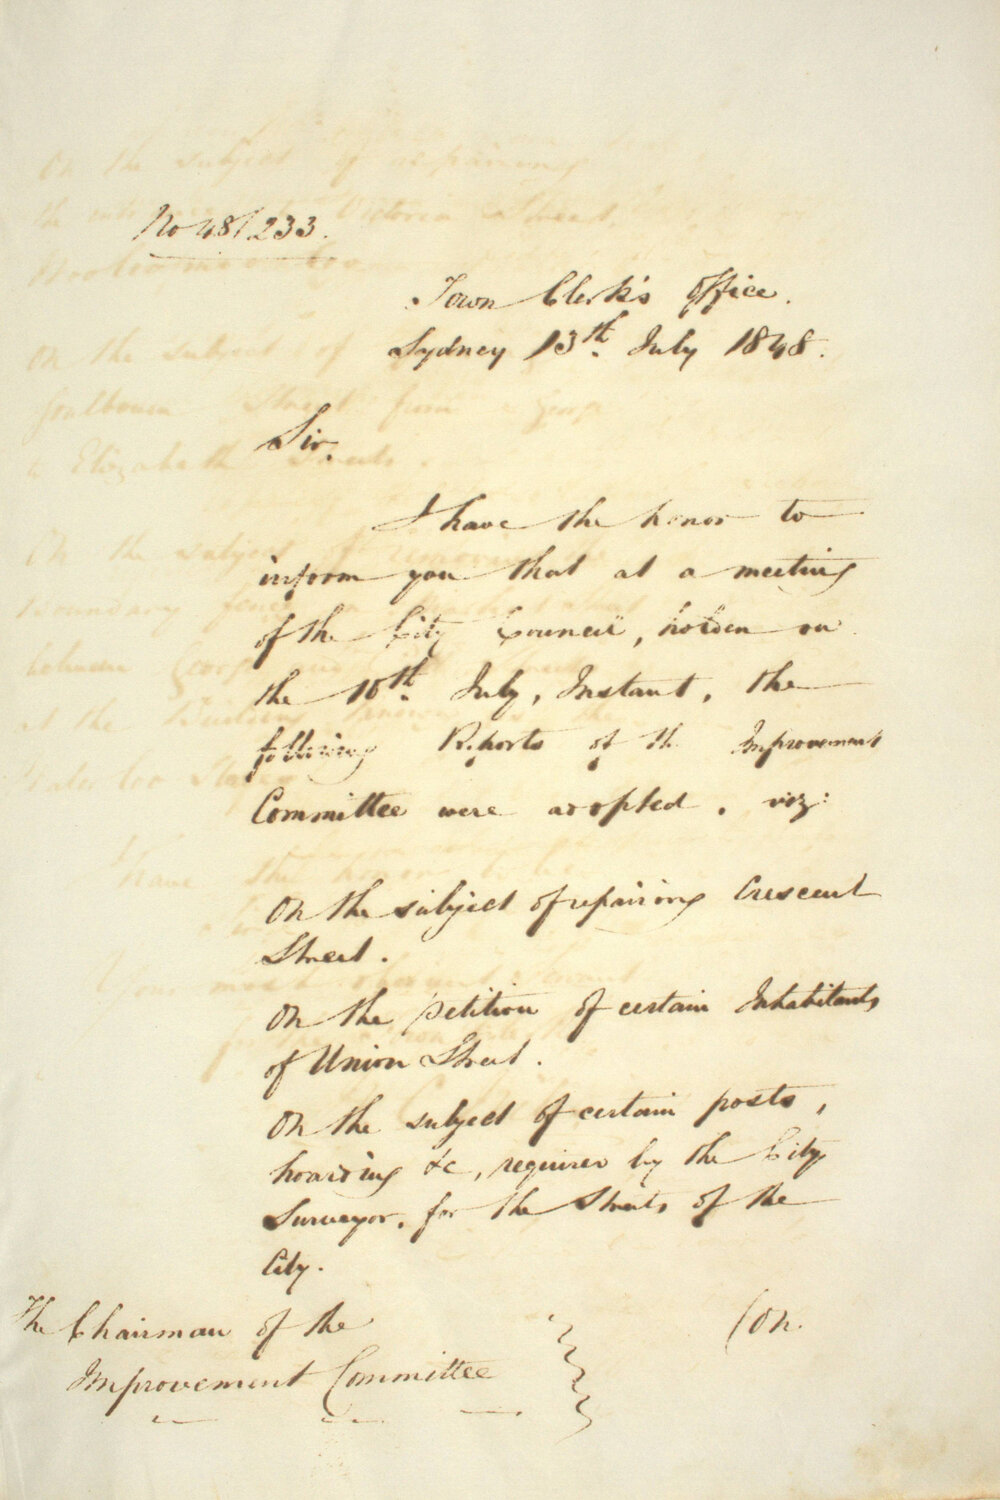 No 48/233.
Town Clerk's Office.
Sydney 13th. July 1848.
Sir,
I have the honor to
inform you that at a meeting
of the City Council, holden on
the 10th. July, Instant, the
following Reports of the Improvement
Committee were adopted. viz:
On the subject of repairing Crescent
Street.
On the petition of certain Inhabitants
of Union Street.
On the subject of certain posts,
hoarding &c, required by the City
Surveyor, for the Streets of the
City.
The Chairman of the
Improvement Committee
(On.